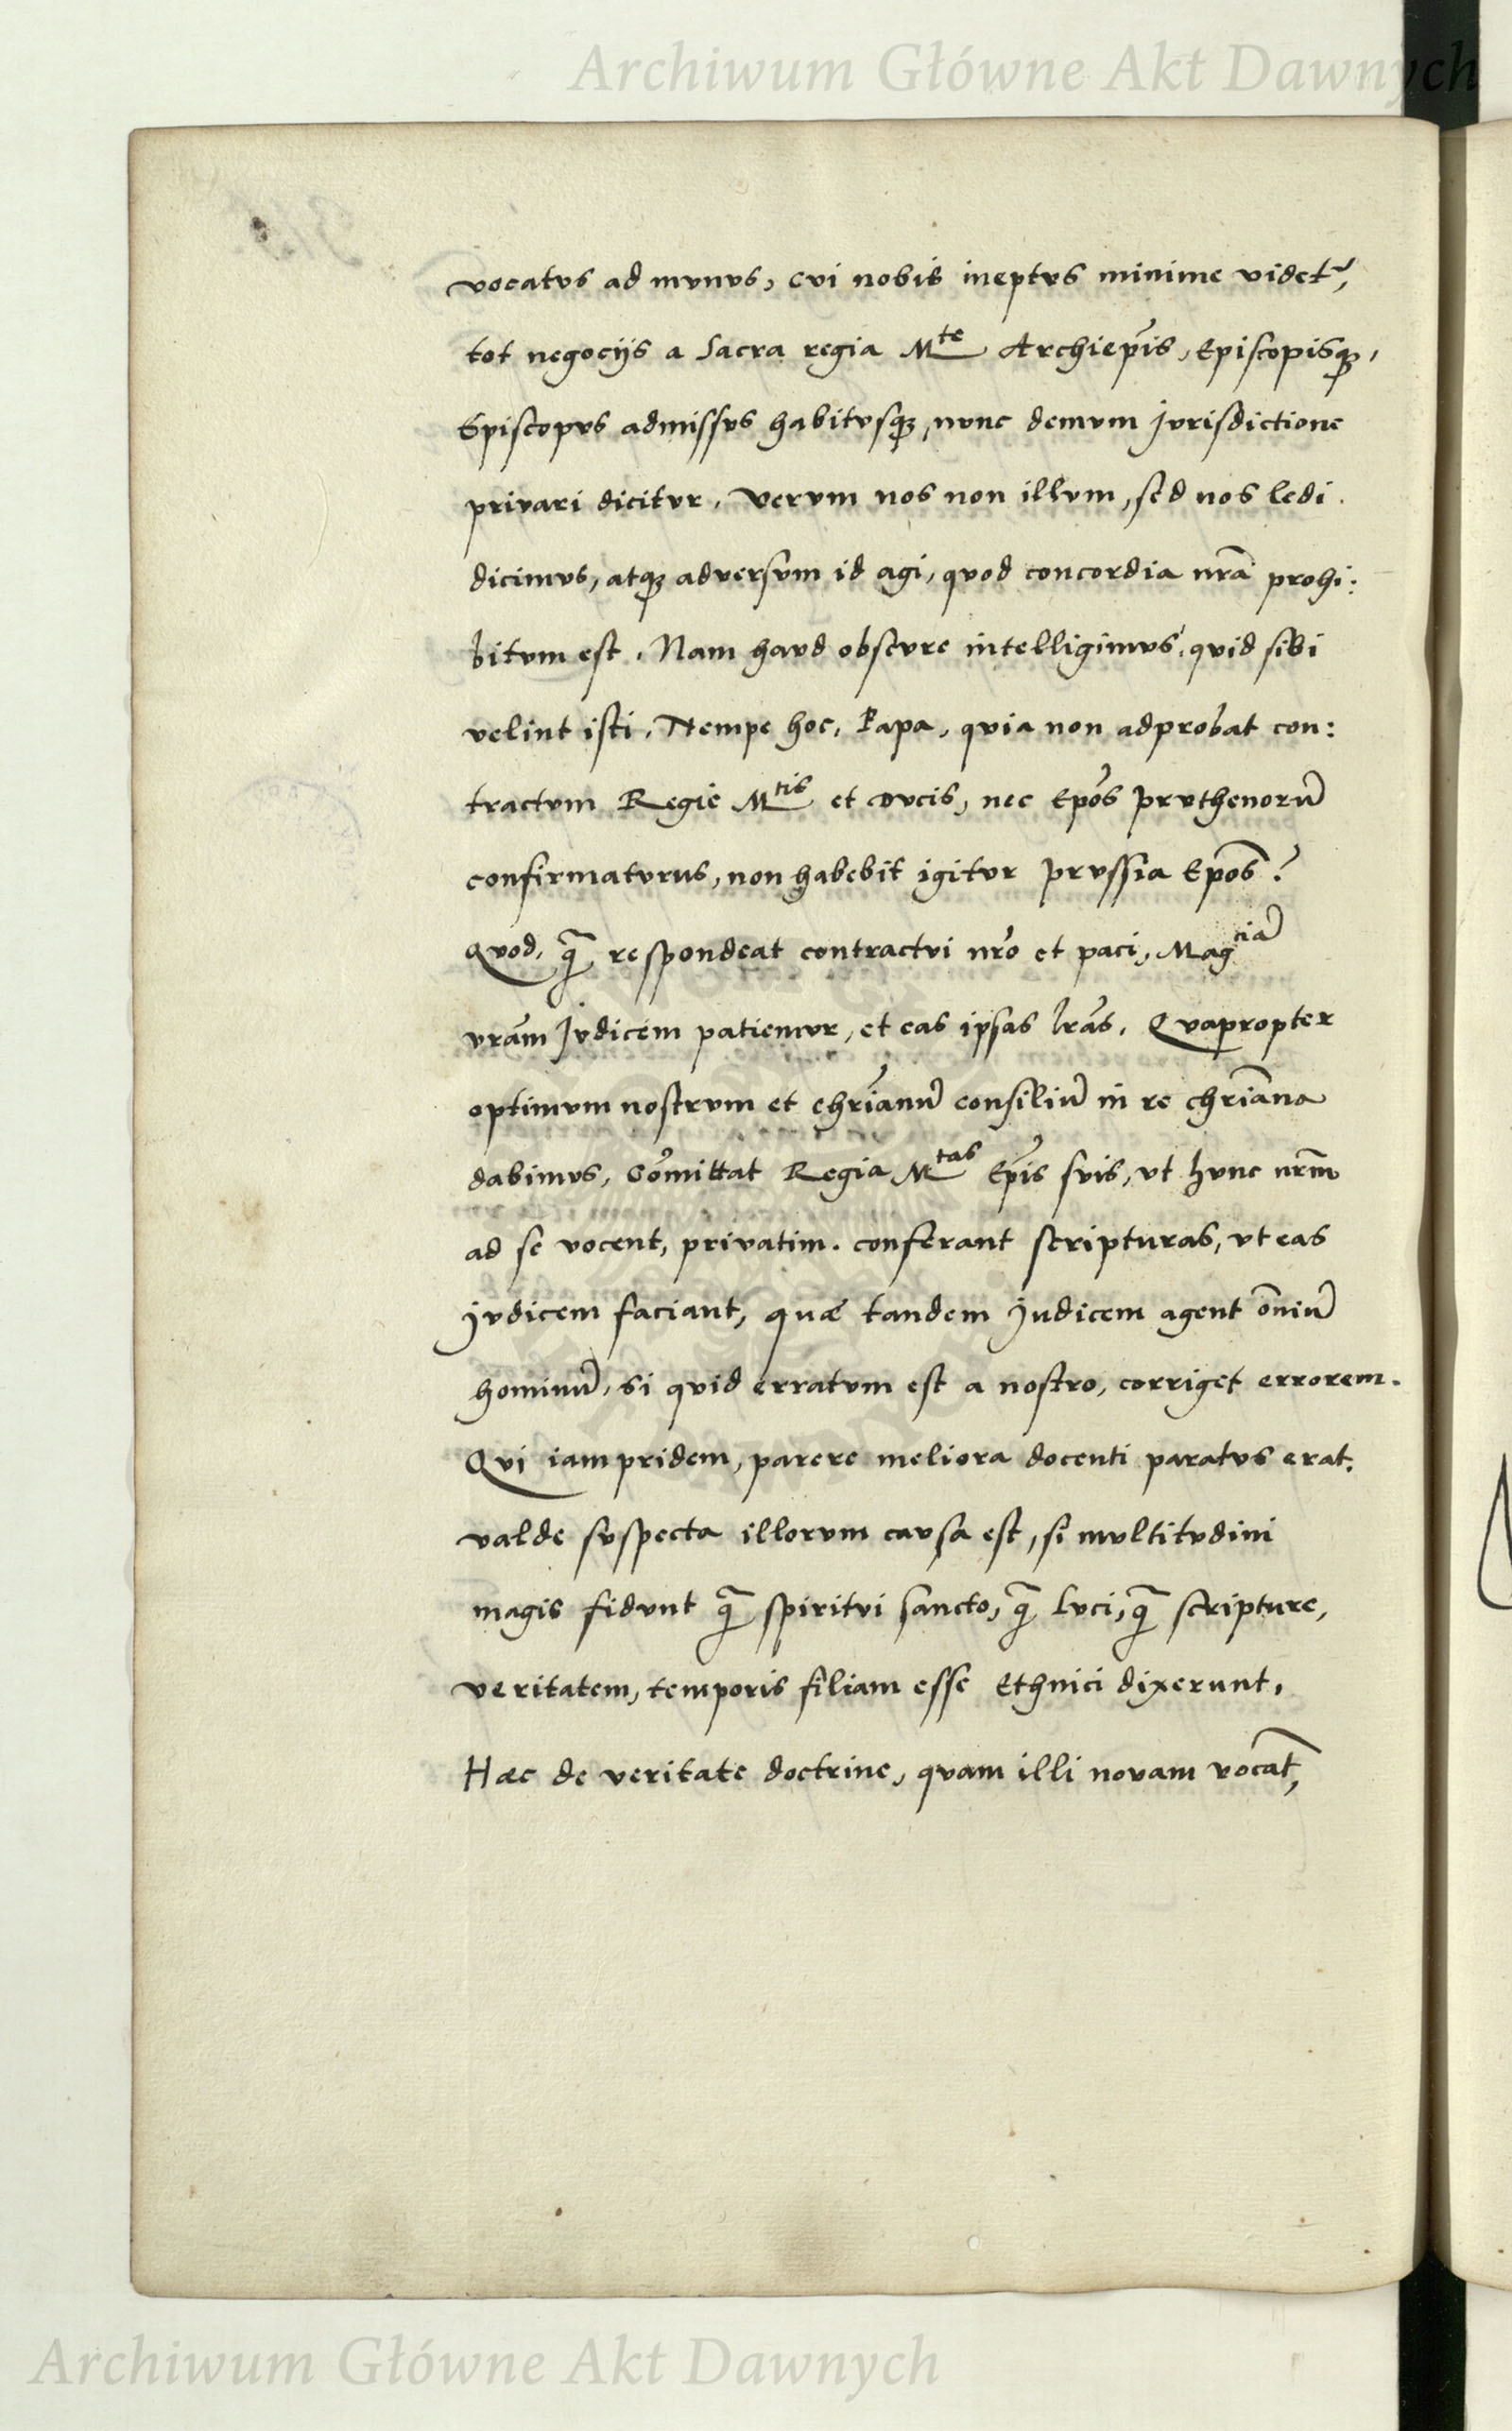 Archiwum Główne Akt Dawnych
vocatvs ad mvnvs, cvi nobis ineptvs minime videtʳ,
tot negocijs a Sacra regia Mᵗᵉ Archiepı̃s, Episcopisqꝫ,
Episcopvs admissvs habitvsqꝫ, nvnc demvm Jvrisdictione
privari dicitvr. Vervm nos non illvm, sed nos ledi.
dicimvs, atqꝫ adversvm id agi, qvod concordia nrã prohi:
bitvm est. Nam havd obscvre intelligimvs, qvid sibi
velint isti. Nempe hoc, Papa, qvia non adprobat con:
tractvm Regie Mᵗⁱˢ et Dvcis, nec Epõs Prvthenorũ
confirmatvrus, non habebit igitvr Prvssia Epõs?
Qvod, q̃ respondeat contractvi nrõ et paci, Magᶜⁱã
vrãm Jvdicem patiemvr, et eas ipsas lrãs. Qvapropter
optimvm nostrvm et chrı̃anũ consiliũ in re chrı̃ana
dabimvs, Cõmittat Regia Mᵗᵃˢ Epı̃s svis, vt hvnc nrm̃
ad se vocent, privatim. conferant scripturas, vt eas
Jvdicem faciant, quæ tandem Judicem agent õniũ
hominũ, si qvid erratvm est a nostro, corriget errorem.
Qvi iam pridem, parere meliora docenti paratvs erat.
valde svspecta illorvm cavsa est, si mvltitvdini
magis fidvnt q̃ spiritvi sancto, q̃ lvci, q̃ scripture,
veritatem, temporis filiam esse Ethnici dixerunt,
Hæc de veritate doctrine, qvam illi novam vocãt,
Archiwum Główne Akt Dawnych